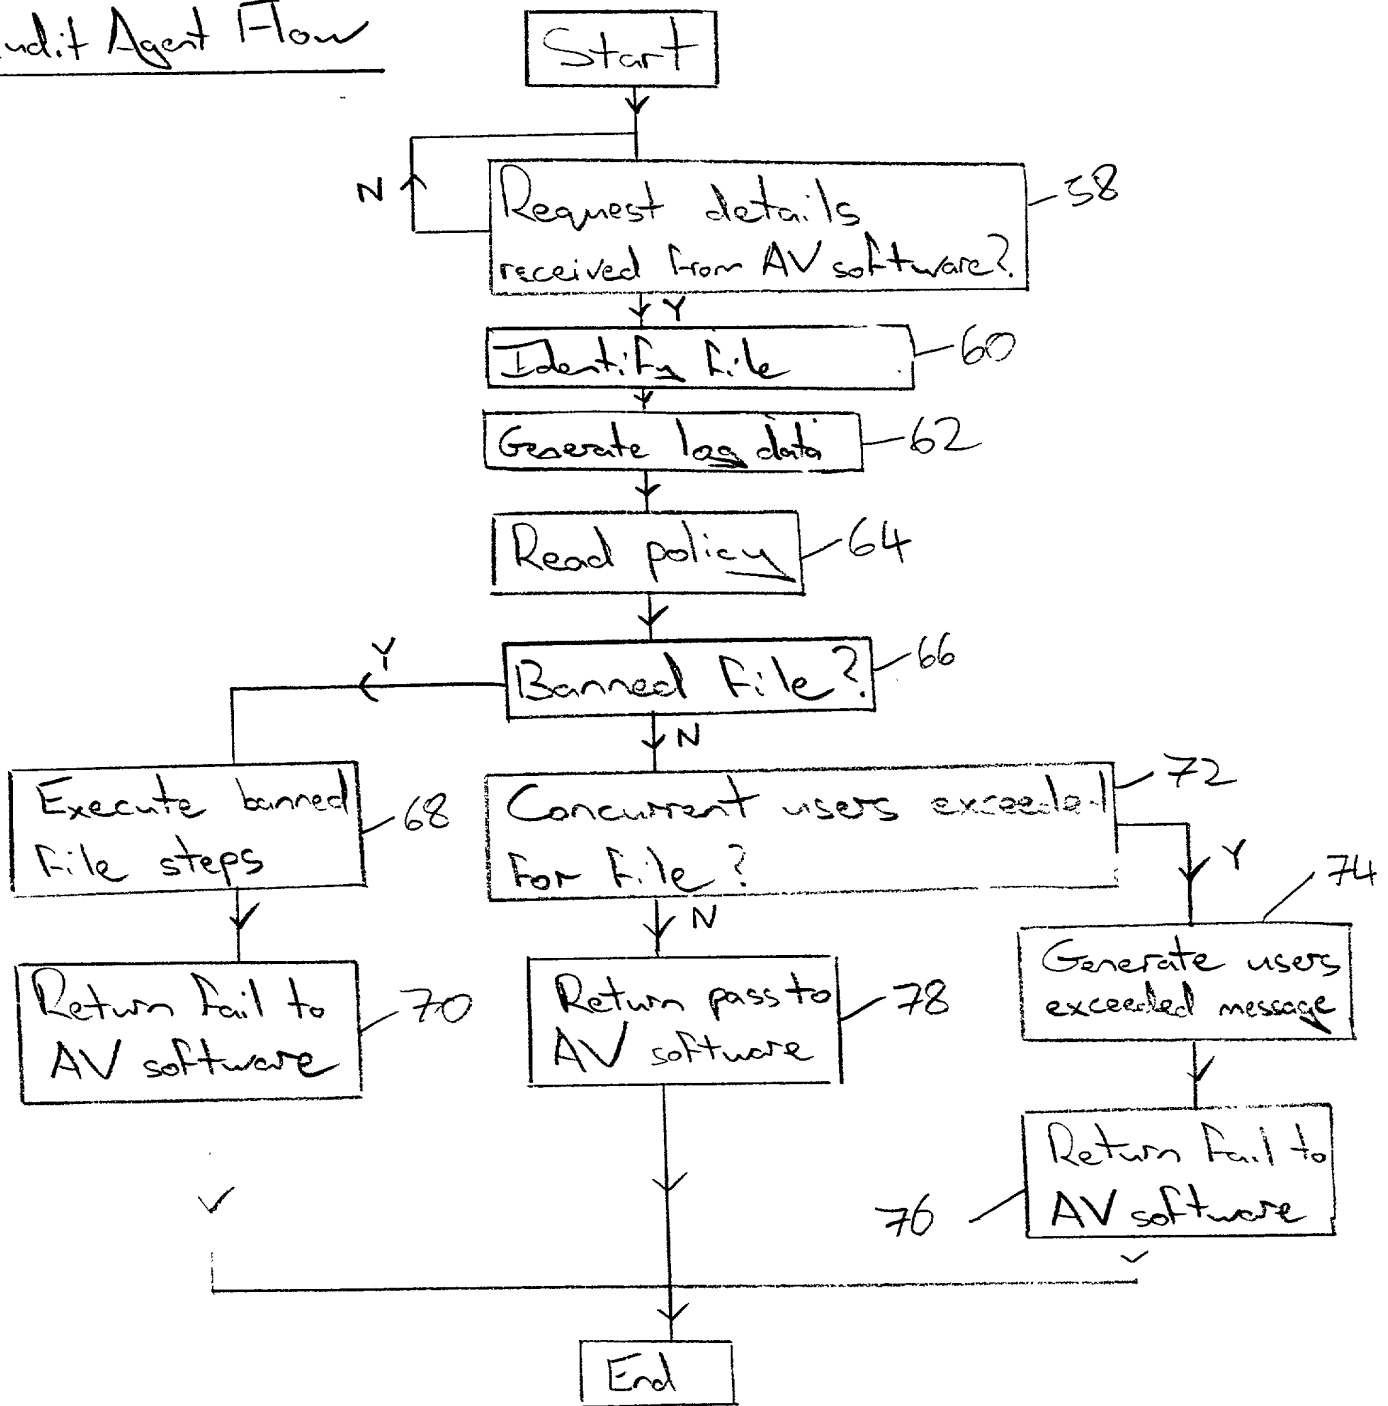 udit Agent Flow
Start
N
Request details
received from AV software?
58
Y
Identify file
60
Generate log data
62
Read policy
64
Y
Banned File?
66
N
Execute banned
File steps
68
Concurrent users exceeded
For File?
72
Y
74
N
Return Fail to
AV software
70
Return pass to
AV software
78
Generate users
exceeded message
Return Fail to
AV software
76
End